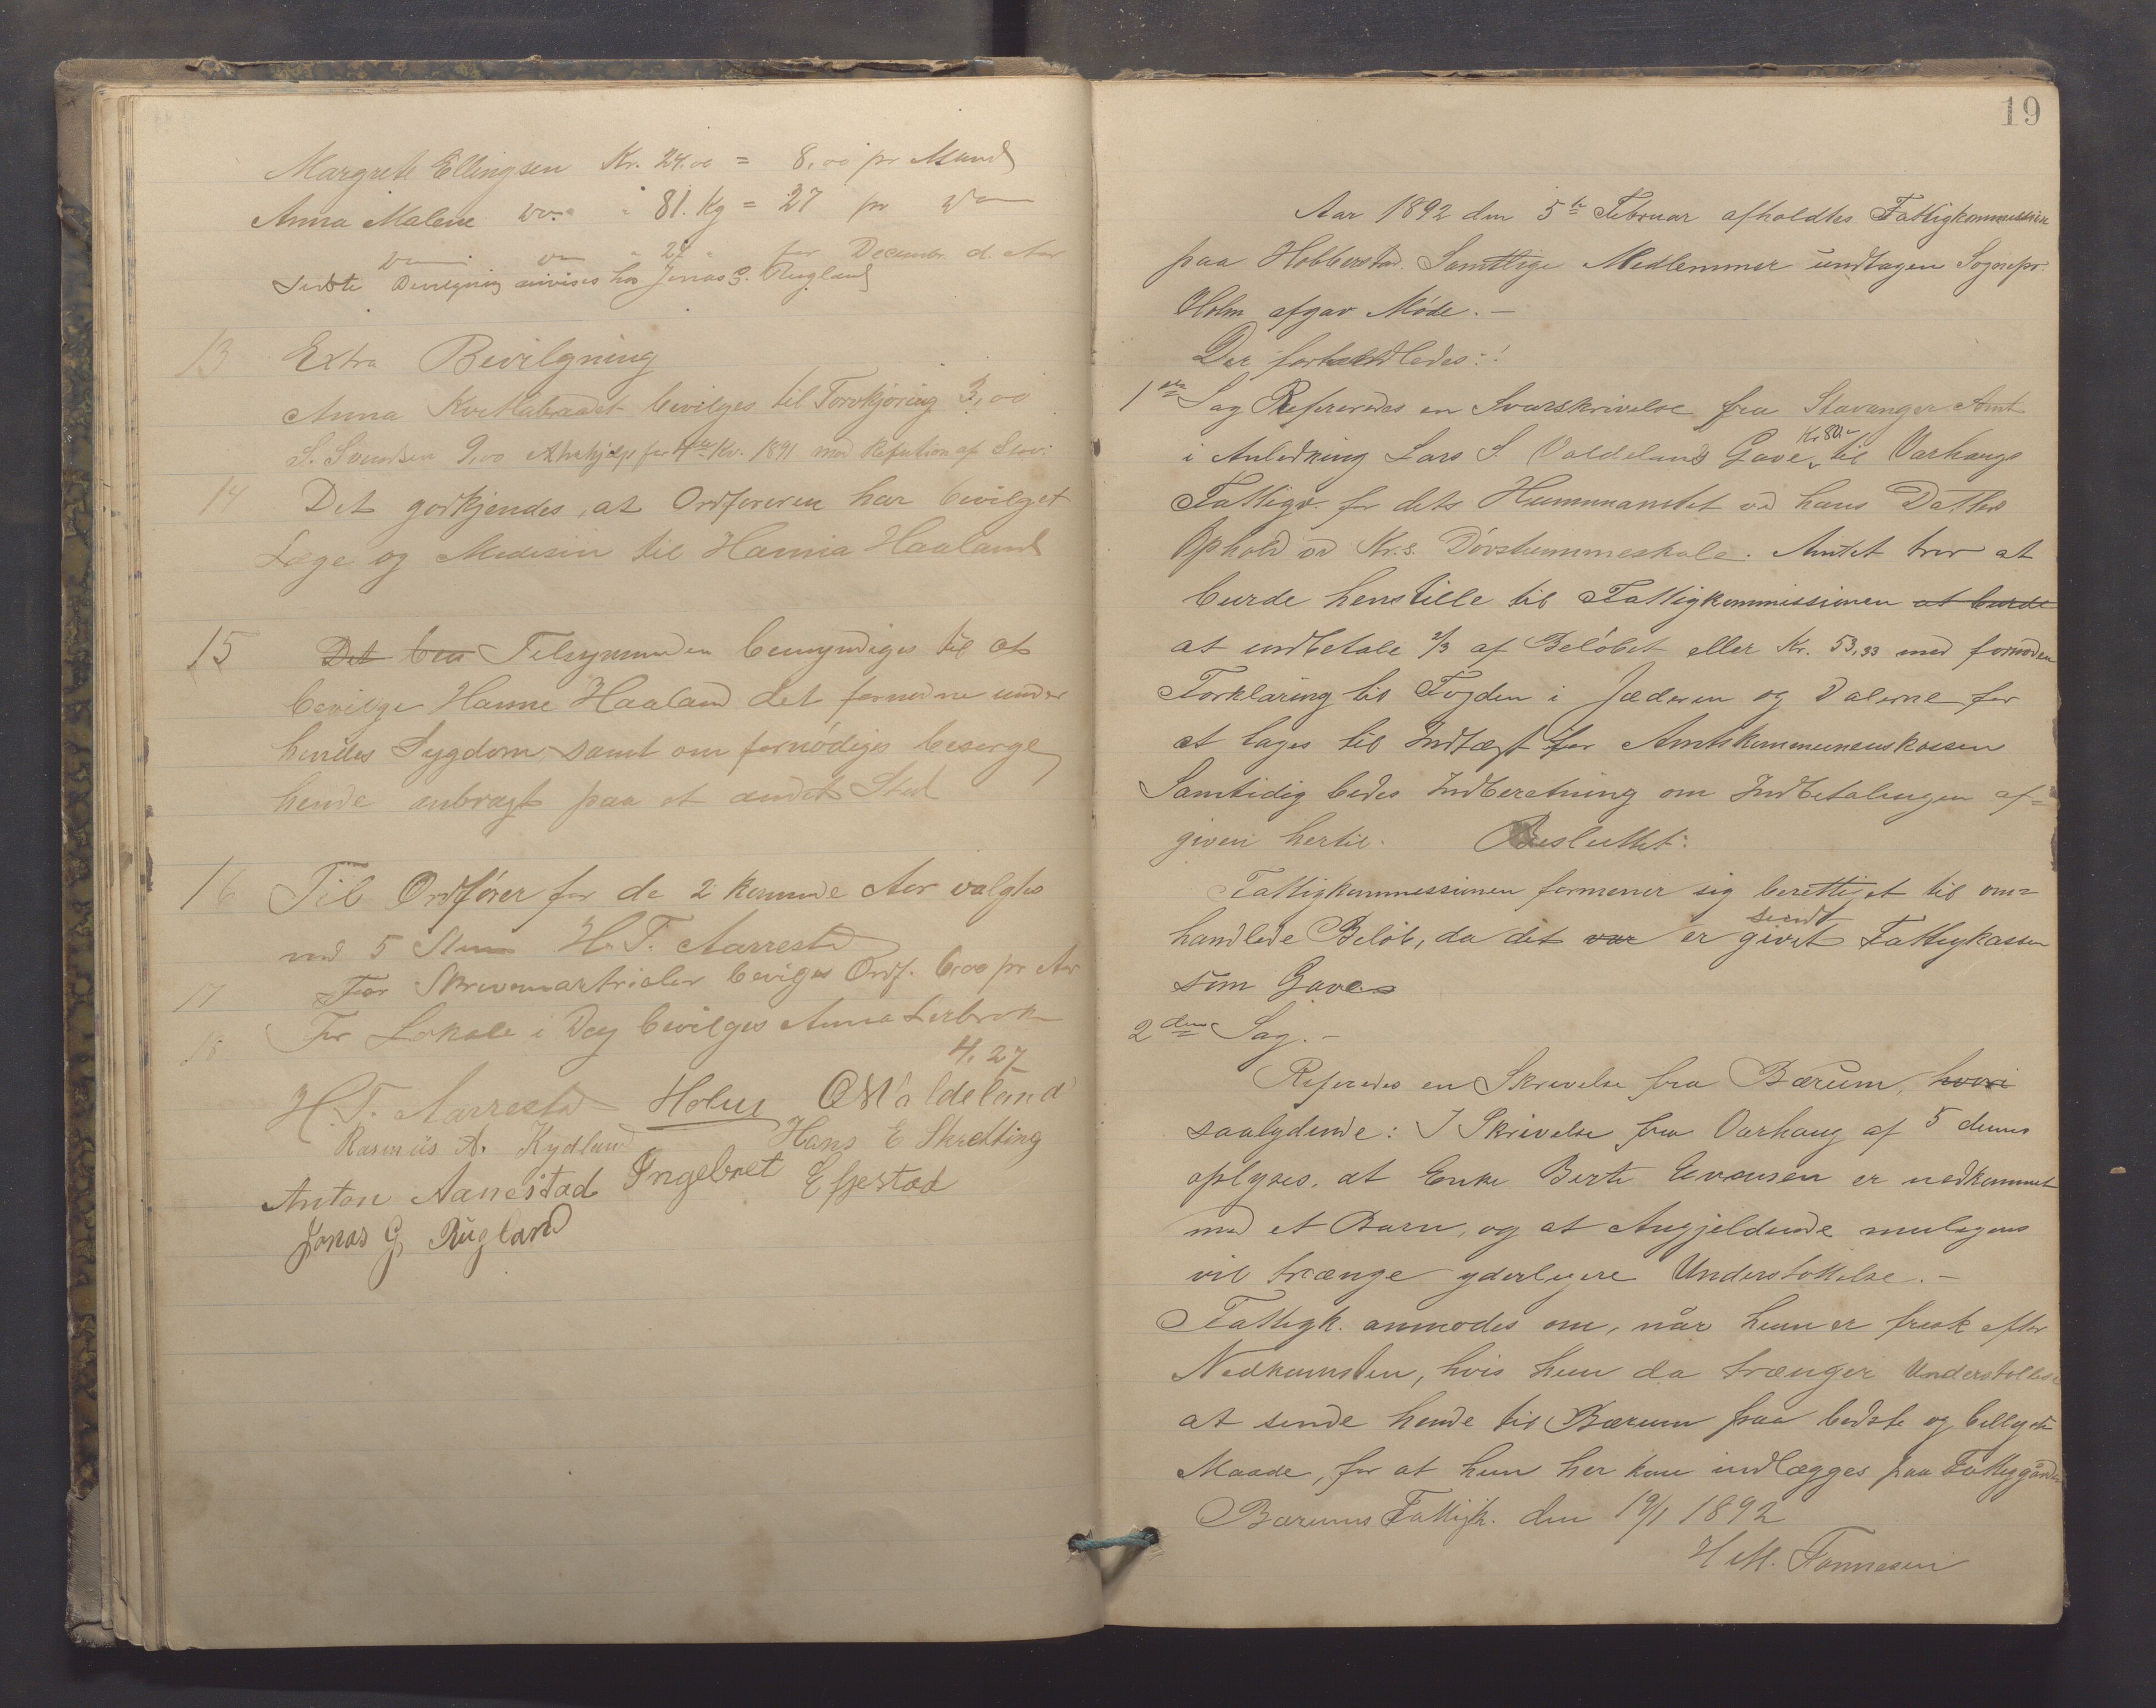 Margrete Ellingsen Kr. 24.00 = 8,00 pr Maaned
Anna Malene do. " 81. Kg = 27 pr do
do do " 27 " for Decembr. d. Aar
Sidste Bevilgning anvises hos Jonas G. Rugland
13 Extra Bevilgning
Anna Kvetlabraadet bevilges til Torvkjöring 3,00
S. Svendsen 9,00 for 4de Kv. 1891 mod Refution af Stav.
14 Det godkjendes, at Ordföreren har bevilget
Læge og Medesin til Hanna Haaland
15 Det bem Tilsynsmanden bemyndiges til at
bevilge Hanne Haaland det fornødne under
hendes Sygdom, samt om fornödiges besørge
hende anbragt paa et andet Sted
16 Til Ordförer for de 2 kommende Aar valgtes
med 5 Stem H. T. Aarrestad
17 For Skrivematrialer beviges Ordf. 6,00 pr Aar
18 For Lokale i Dag bevilges Anna Lerbrek
4.27
H. T. Aarrestad Holm O Valdeland
Rasmus A. Kydland Hans E Skretting
Anton Aanestad Ingebret Efjestad
Jonas G. Rugland
19
Aar 1892 den 5te Februar afholdtes Fattigkommission
paa Hobberstad. Samtlige Medlemmer undtagen Sognepr.
Holm afgav Møde. —
Der forhandledes:
1ste Sag Refereredes en Svarskrivelse fra Stavanger Amt
Kr 80,-
i Anledning Lars S. Valdelands Gave til Varhaugs
Fattigv. for dets ved hans Datters
Ophold ved Kr.s. Døvstummeskole. Amtet tror at
burde henstille til Fattigkommissionen at burde
at indbetale 2/3 af Beløbet eller Kr. 53,33 med fornøden
Forklaring til Fogden i Jæderen og Dalerne for
at tages til Indtægt for Amtskommunenskassen
Samtidig bedes Indberetning om Indbetalingen af=
given hertil. Besluttet:
Fattigkommissionen formener sig berettiget til om=
sendt
handlede Beløb, da det var er givet Fattigkassen
som Gave.
2den Sag. —
Referedes en Skrivelse fra Bærum, hvori
saalydende: I Skrivelse fra Varhaug af 5 dennes
oplyses, at Enke Berte Evensen er nedkommet
med et Barn, og at Angjeldende muligens
vil trænge yderligere Understøttelse. —
Fattigk. anmodes om, når hun er frisk efter
Nedkomsten, hvis hun da trænger Understøttelse
at sende hende til Bærum paa bedste og billigste
Maade, for at hun her kan indlægges paa Fattiggården
Bærums Fattigk. den 19/1 1892
H M. Fonnesen